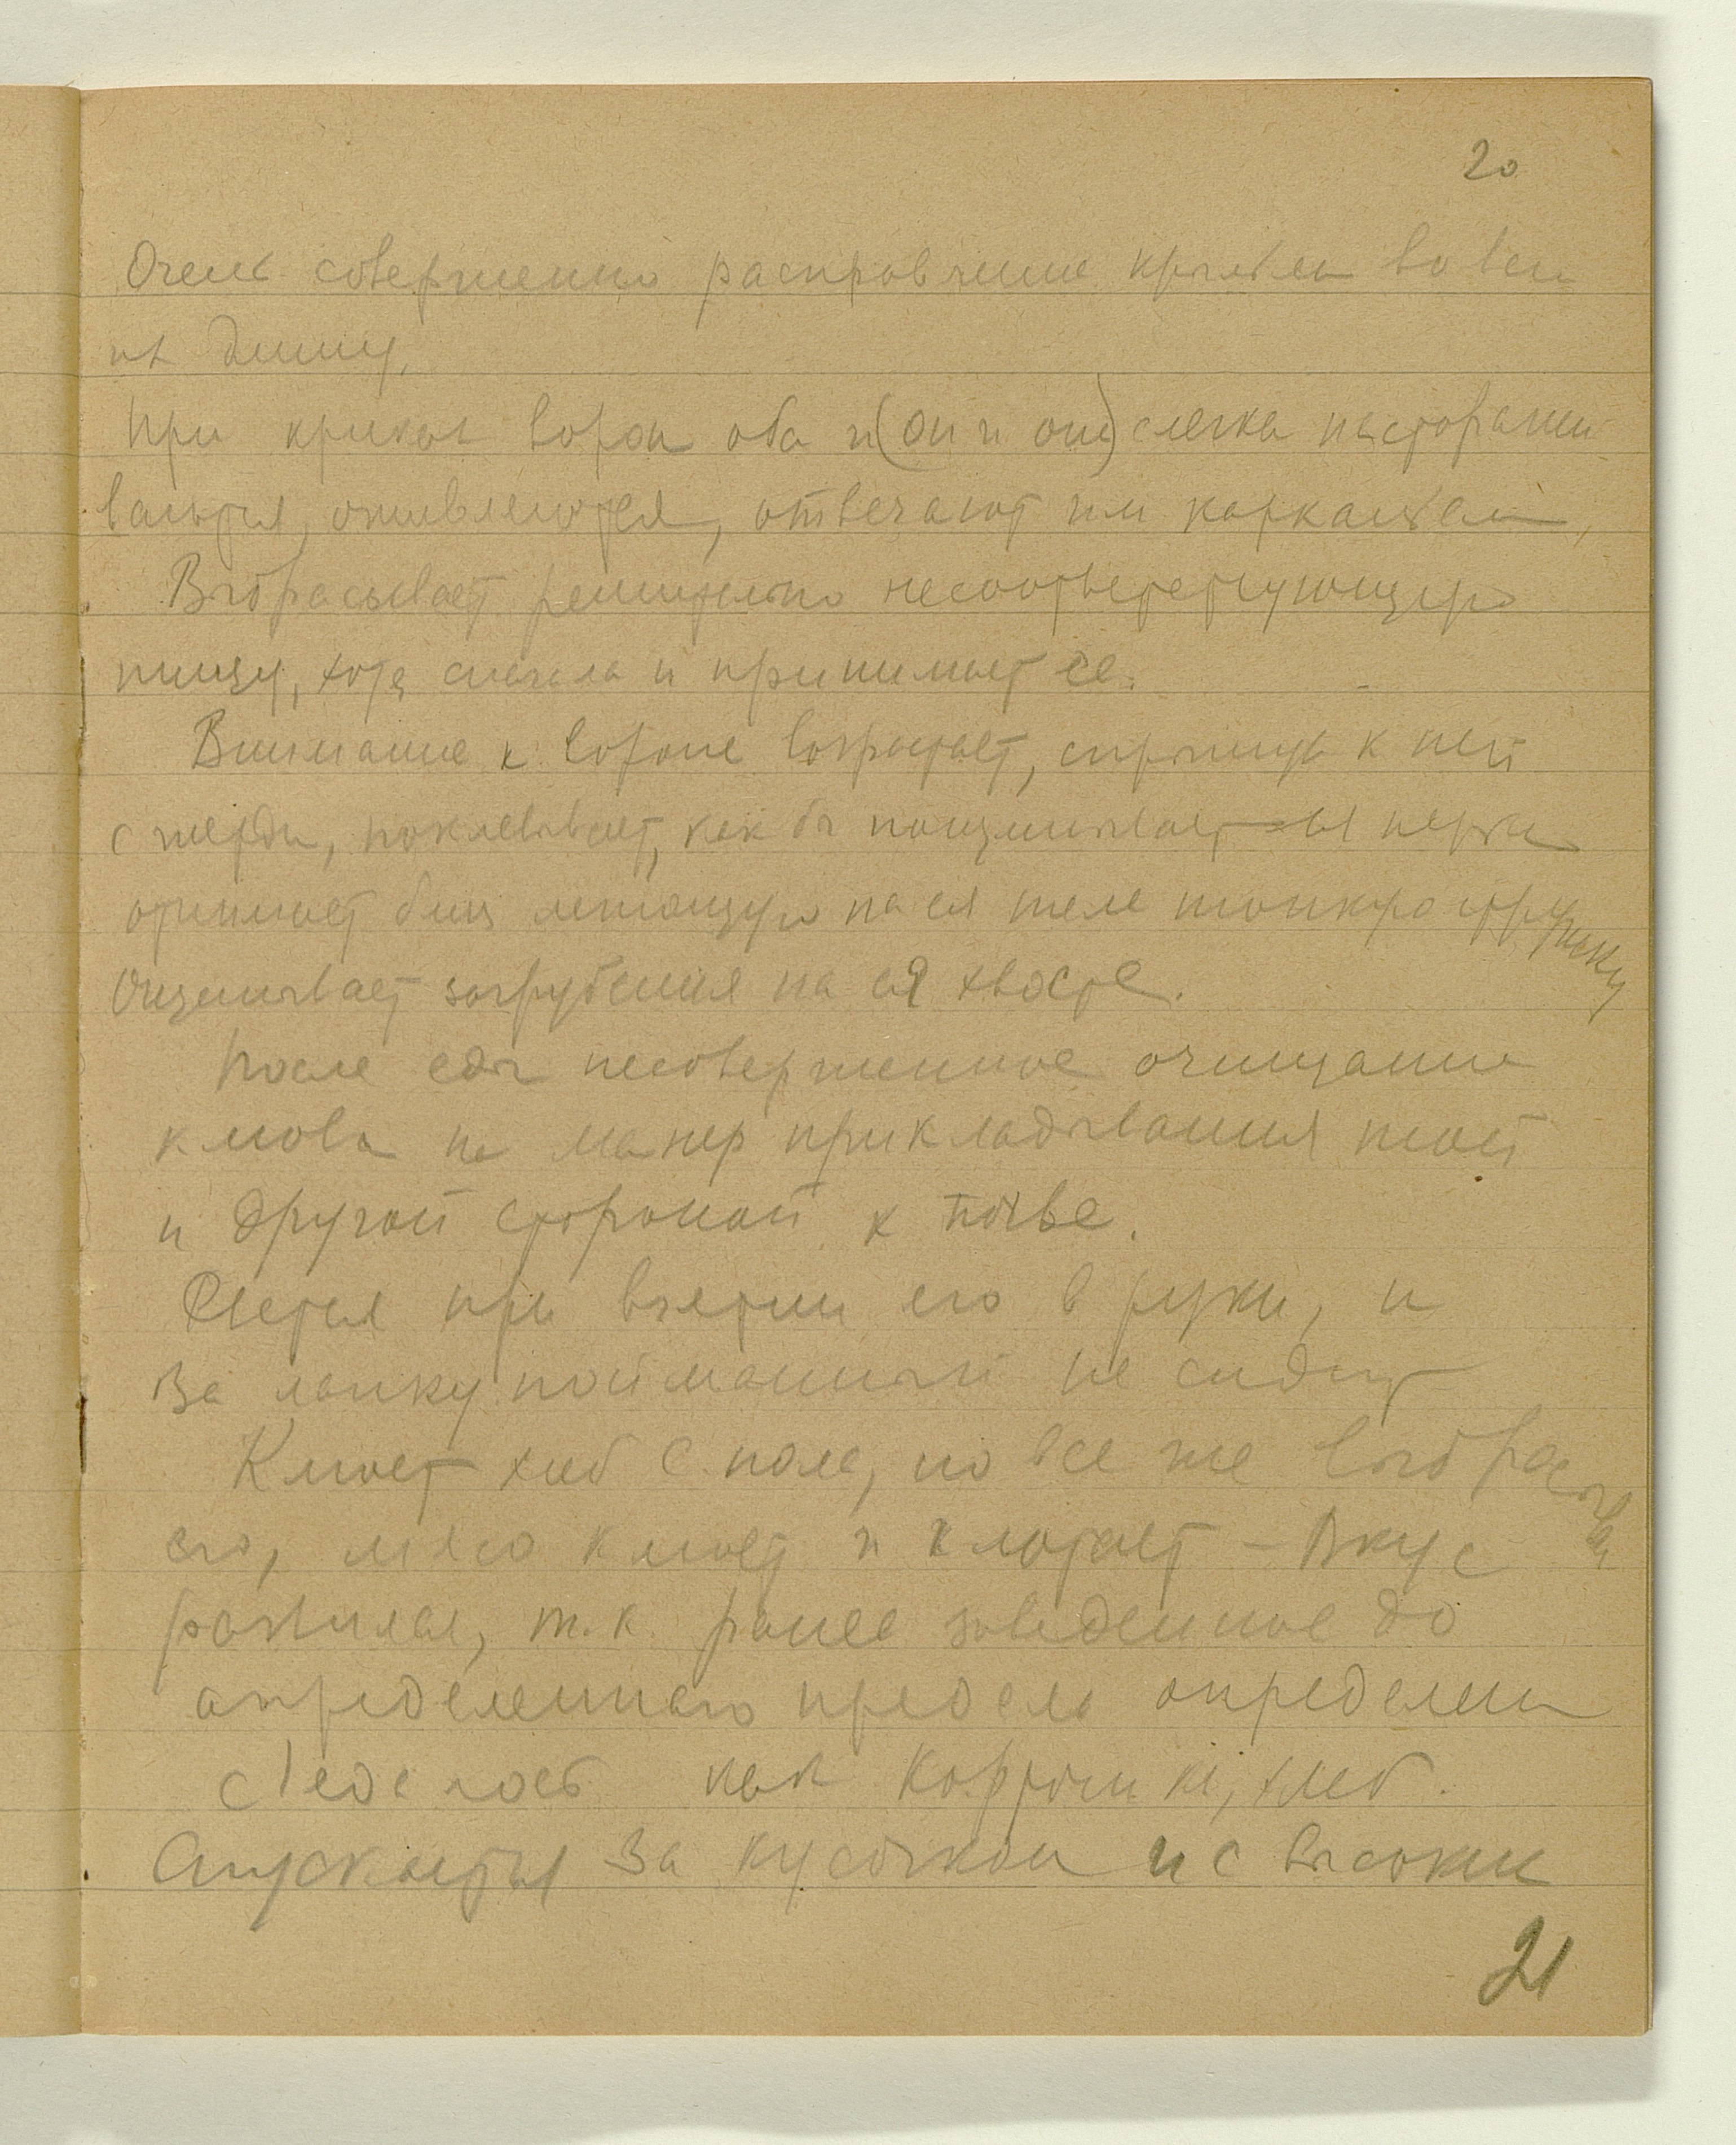 20
Очень совершенно расправление крыльев во всю
их длину.
При криках ворон оба и (он и она) слегка насторажи
ваются, оживляются, отвечают им карканьем,
Выбрасывает решительно несоответствующую
пищу, хотя сначала и принимает ее.
Внимание к вороне возрастает, спрыгнув к ней
с жерди, поклевывает, как бы пощипывает ея перья
отнимает лежащую на ея теле тонкую стружку
Ощипывает загрубения на ея хвосте.
После еды несовершенное очищание
клюва на манер прикладывания той
и другой стороной к почве.
при взятии его в руки, и
За лапку пойманный не сидит
Клюет хлеб с пола, но все же выбрасывает
его, мясо клюет и глотает – Вкус
развился, т.к. ранее заведенное до
определенного предела определен
съедалось как картошка, хлеб.
Спускается за кусочком и с высоких
21